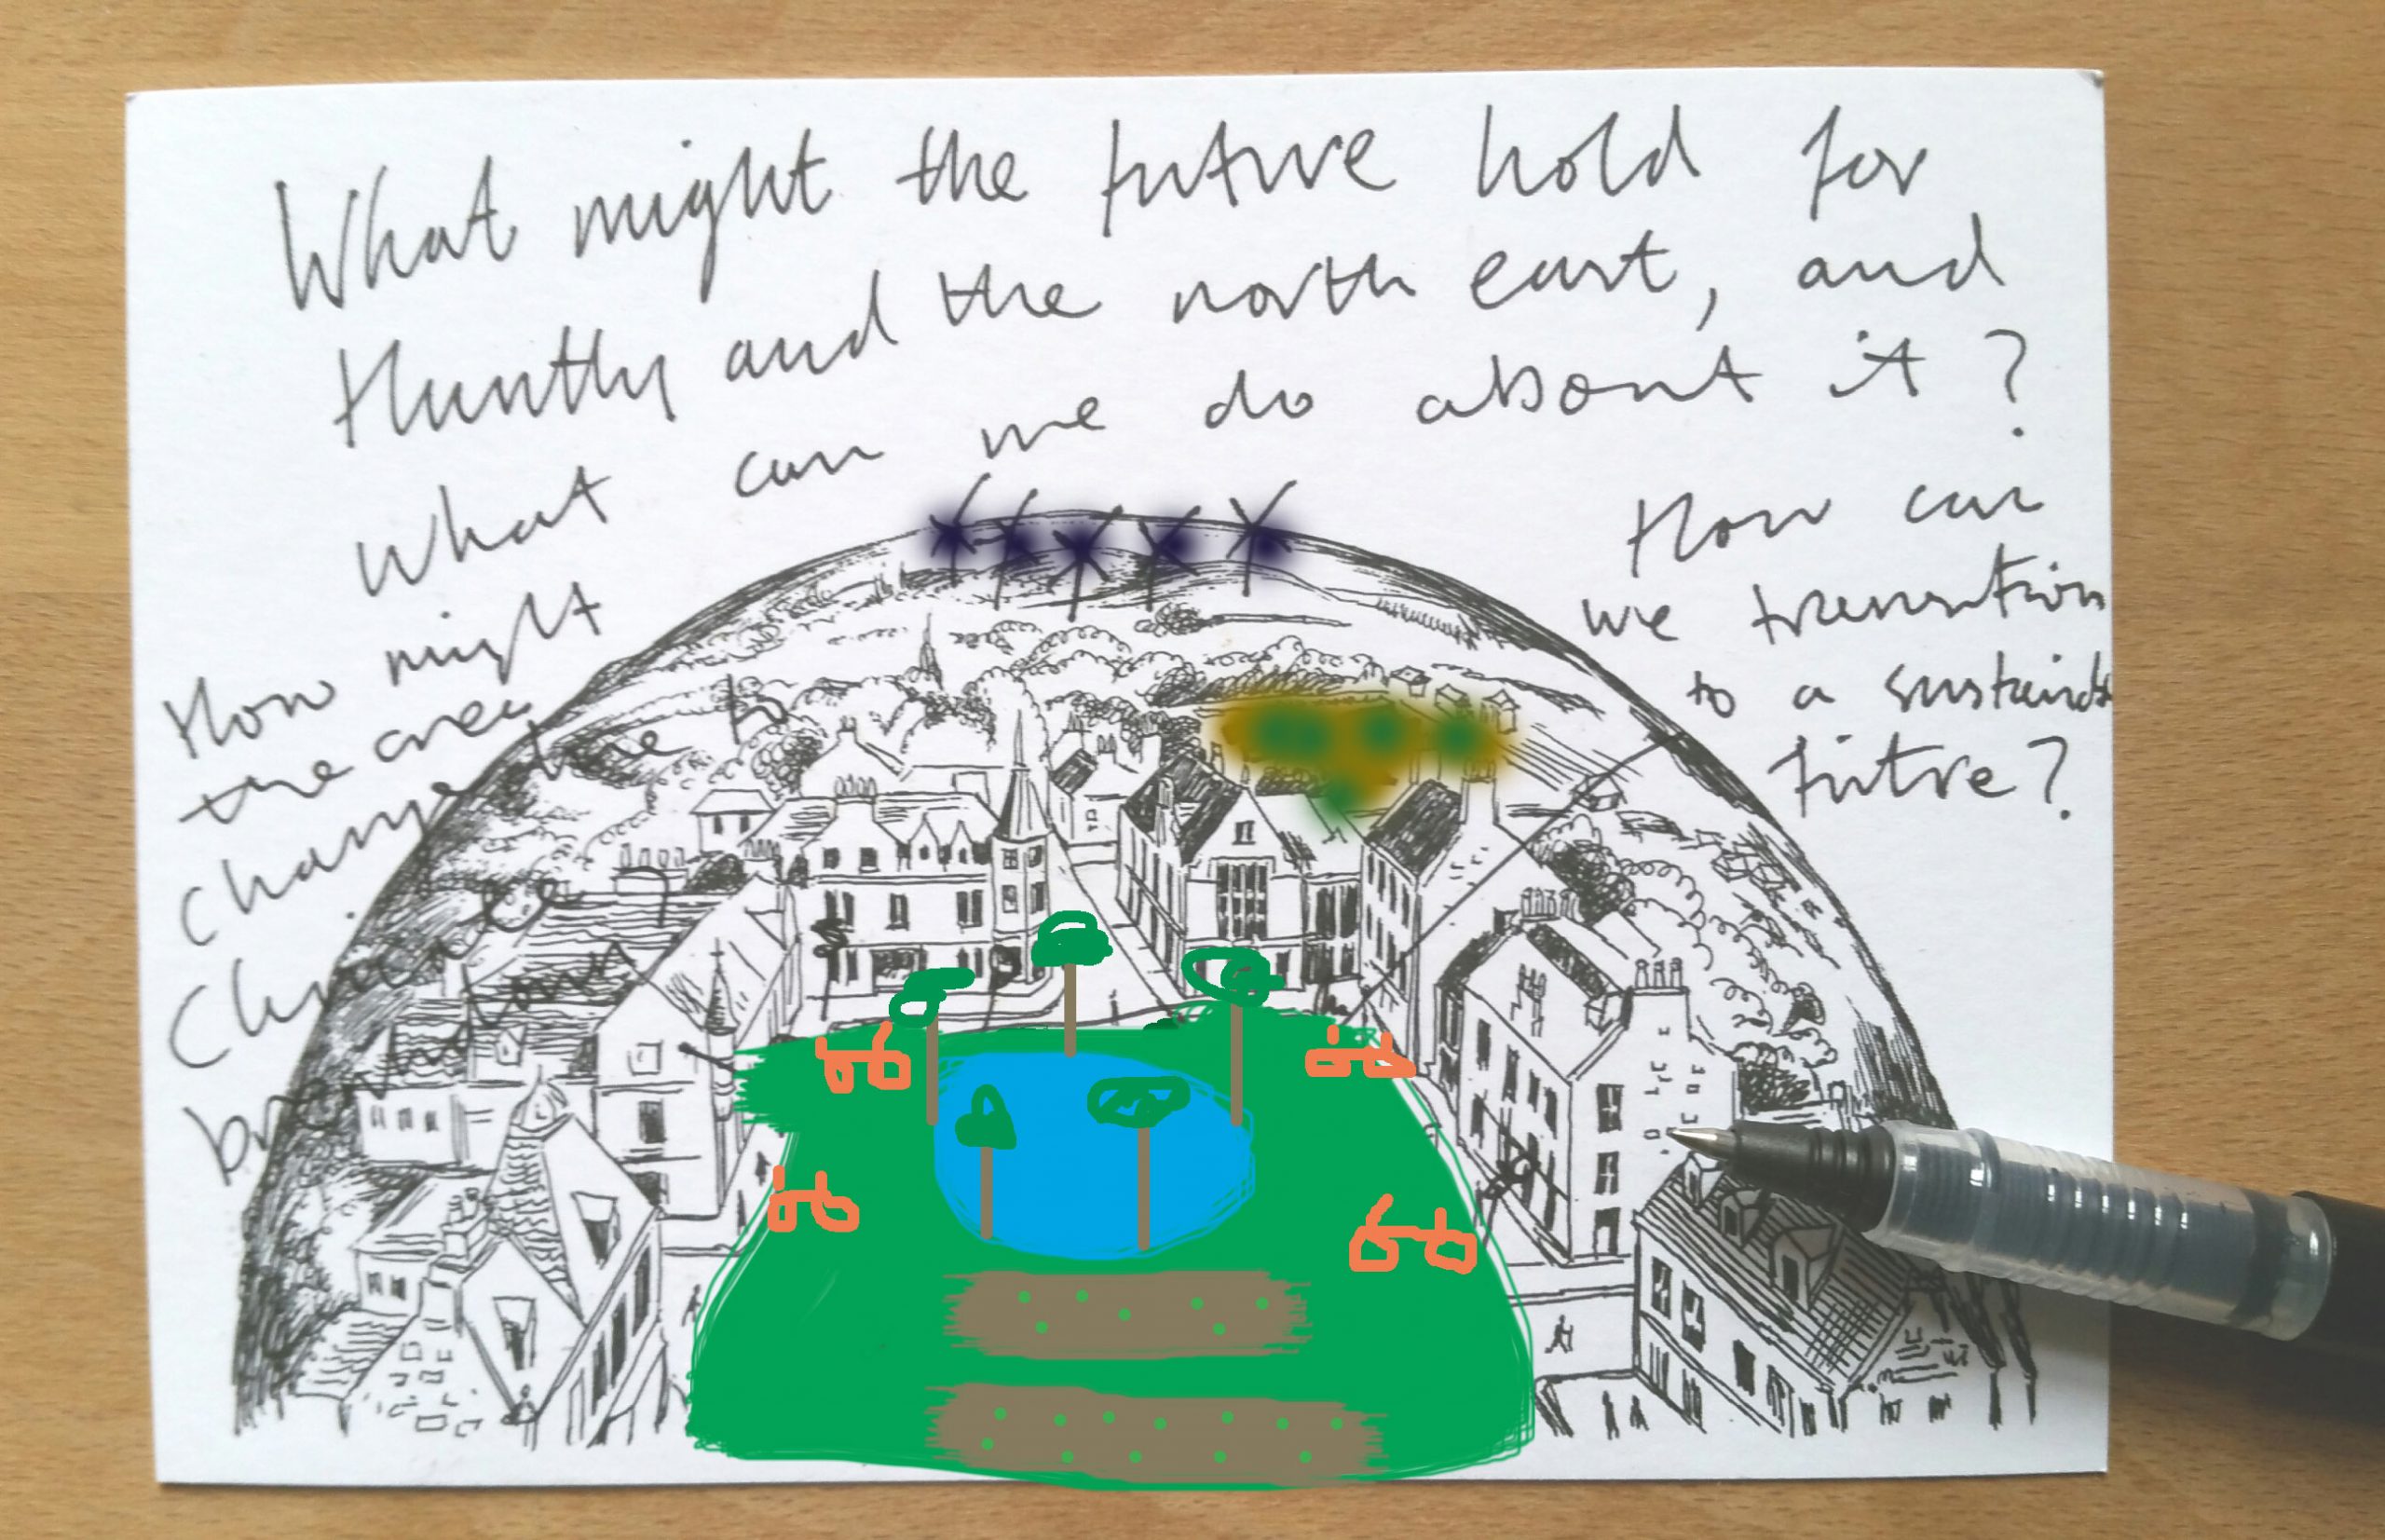 What might the future hold for
Huntly and the north east, and
What can we do about it?
How might
the area
change due to
Climate
breakdown
How can
we transition
to a
future?